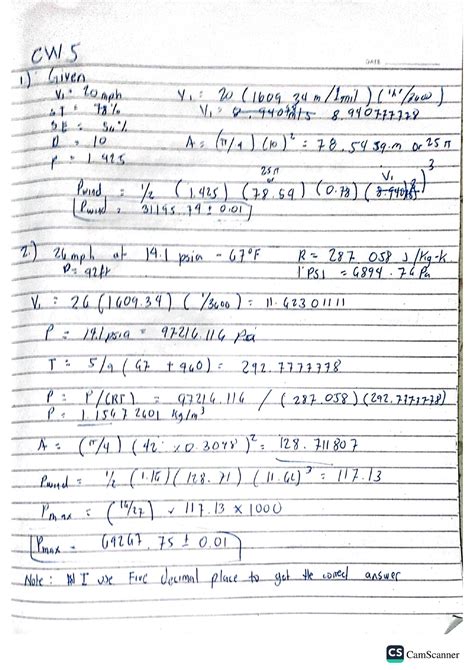 CW5
DATE
1.) Given
V₁ = 20 mph V₁ = 20 (1609.34 m/1mil) (1h/3600)
ST = 78% V₁ = 8.940 m/s 8.940777778
SE = 56%
D = 10 A = (π/4)(10)² = 78.54 sq.m or 25π
P = 1.425
25π
or V₁
Pwind = 1/2 (1.425) (78.54) (0.78) (8.9408)³
Pwind = 31195.79 ± 0.01
2.) 26 mph at 14.1 psia - 67°F R = 287.058 J/kg-k
D = 42ft 1 PSI = 6894.76 Pa
V₁ = 26 (1609.34) (1/3600) = 11.62301111
P = 14.1 psia = 97216.116 Pa
T = 5/9 (67 + 460) = 292.7777778
P = P/(RT) = 97216.116 / (287.058)(292.7777778)
P = 1.15672601 kg/m³
A = (π/4) (42 x 0.3048)² = 128.711807
Pwind = 1/2 (1.16)(128.71) (11.62)³ = 117.13
Pmax = (16/27) x 117.13 x 1000
Pmax = 69267.75 ± 0.01
Note: I use Five decimal place to get the correct answer
CS CamScanner